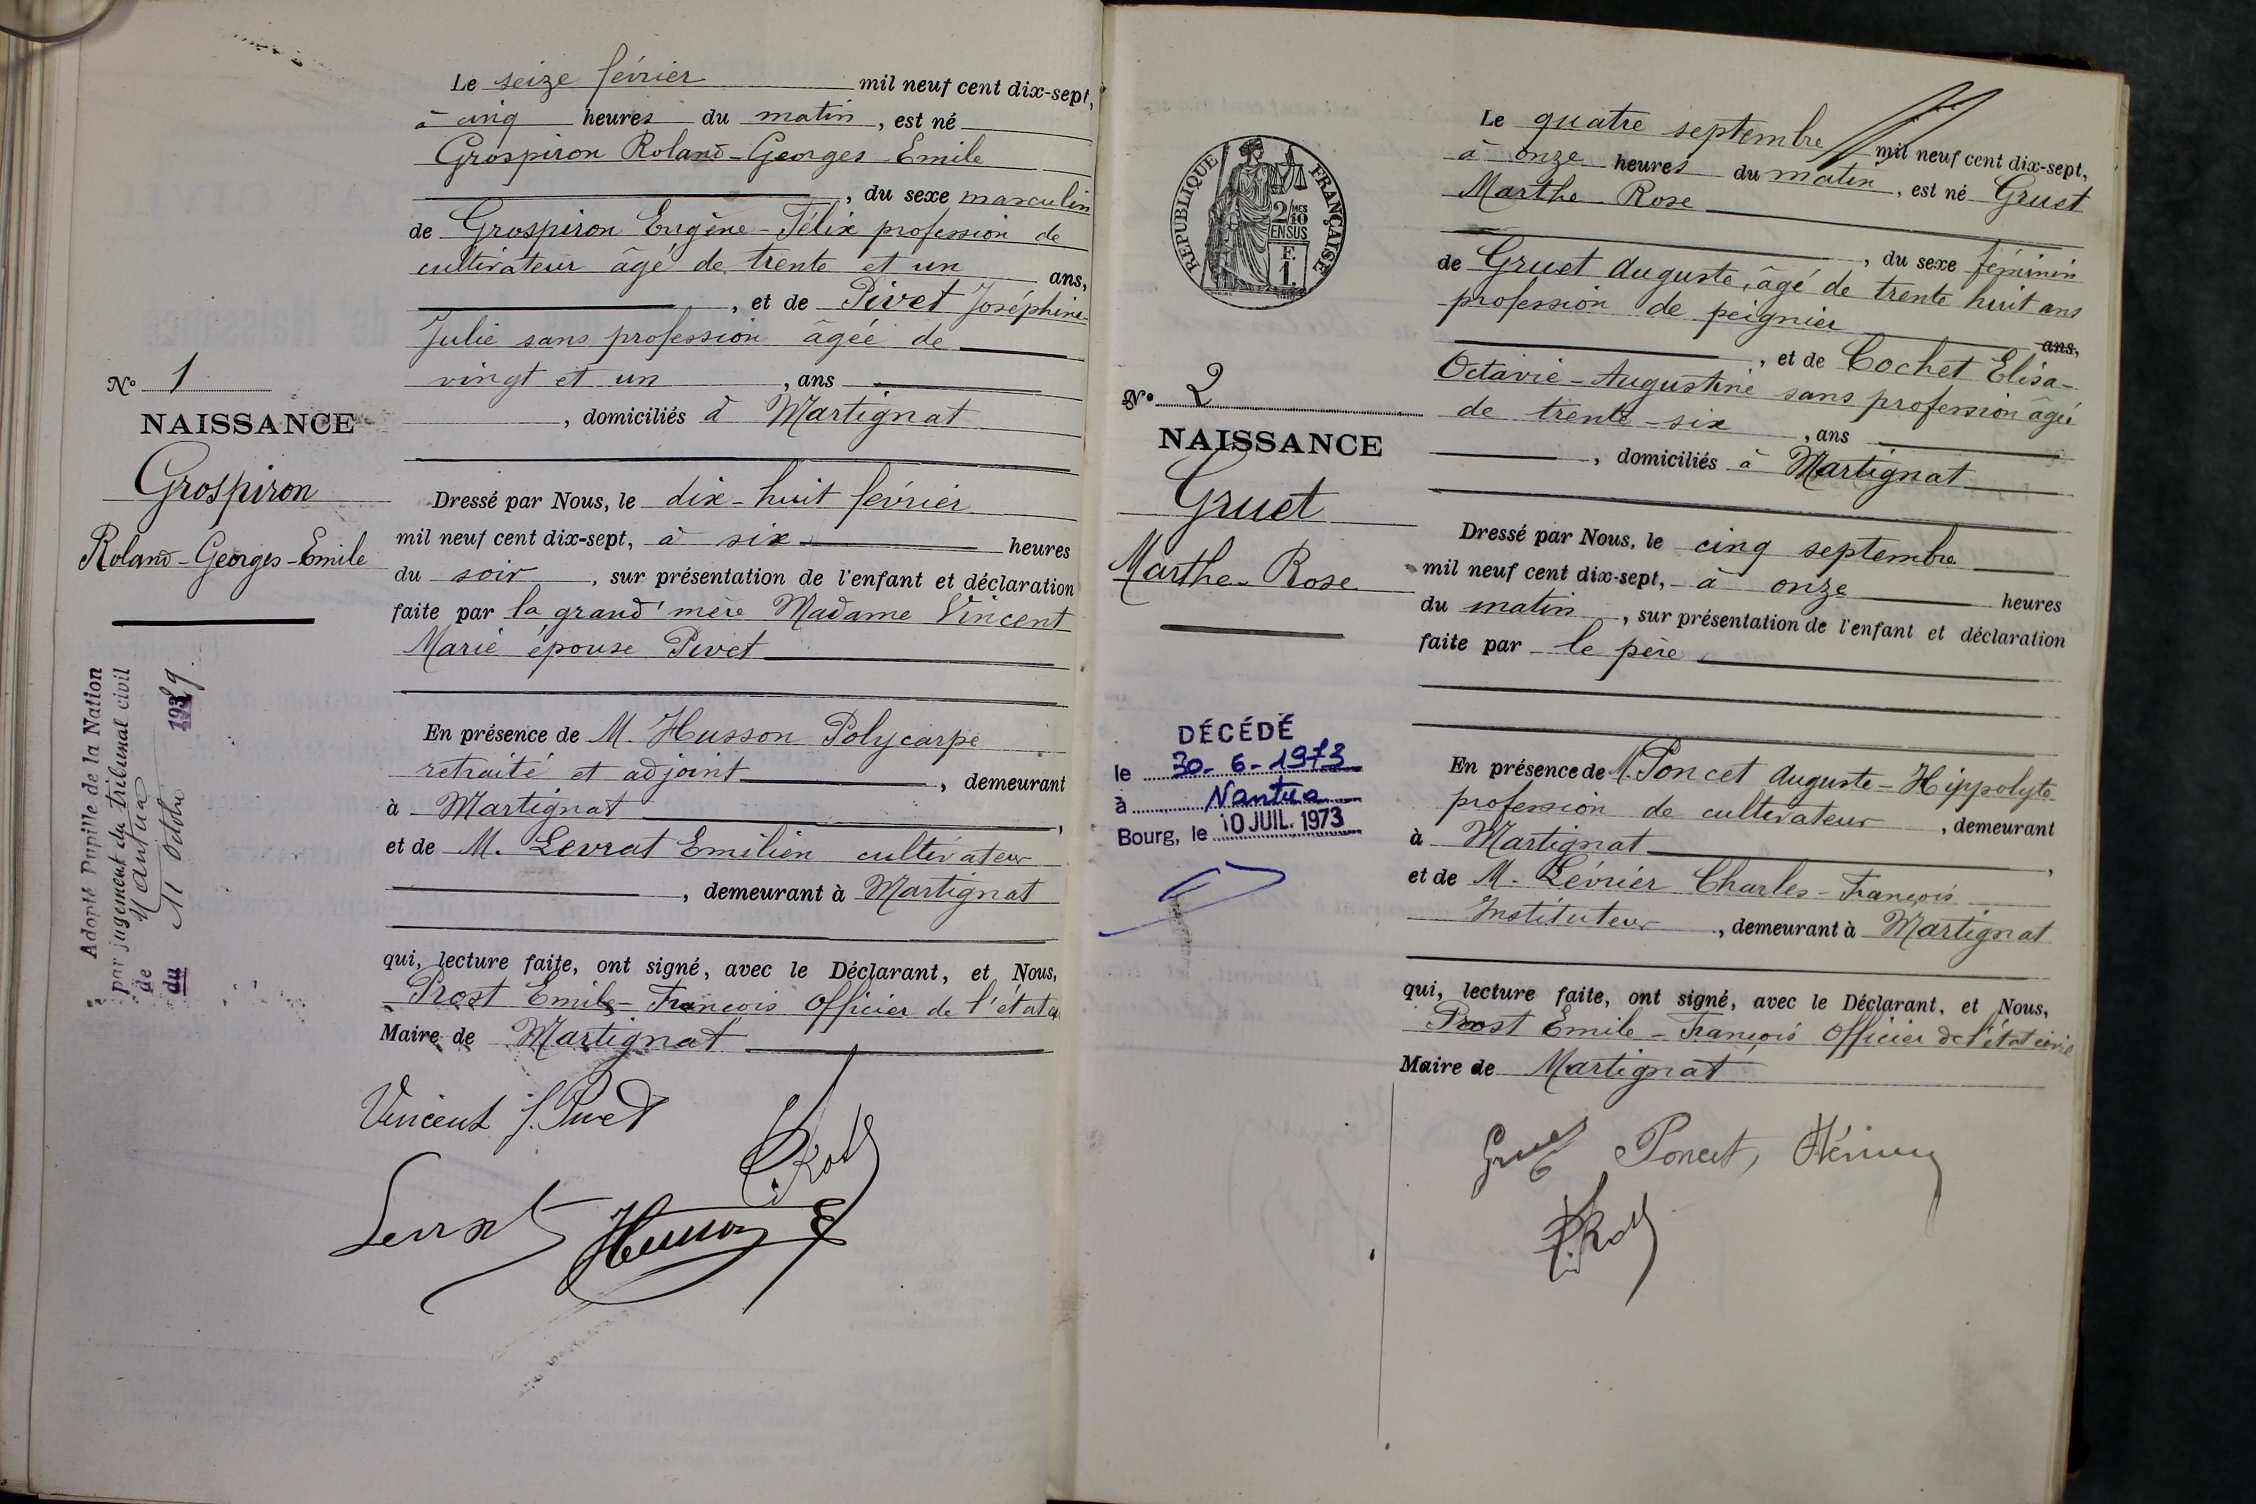 Le seize février mil neuf cent dix-sept,
à cinq heures du matin, est né
Grospiron Roland-Georges-Emile
, du sexe masculin
de Grospiron Eugène-Félix profession de
cultivateur âgé de trente et un ans,
, et de Pivet Joséphine-
Julie sans profession âgée de
vingt et un, ans
, domiciliés à Martignat
Nº 1
NAISSANCE
Grospiron
Roland-Georges-Emile
Dressé par Nous, le dix-huit février
mil neuf cent dix-sept, à six heures
du soir, sur présentation de l'enfant et déclaration
faite par la grand'mère Madame Vincent
Marie épouse Pivet
Adopté Pupille de la Nation
par jugement du tribunal civil
de Nantua
du 11 Octobre
En présence de M. Husson Polycarpe
retraité et adjoint, demeurant
à Martignat,
et de M. Levrat Emilien cultivateur
, demeurant à Martignat
qui, lecture faite, ont signé, avec le Déclarant, et Nous,
Prost Emile-François Officier de l'état
Maire de Martignat
Vincent f. Pivet
Levrat Husson
Le quatre septembre mil neuf cent dix-sept,
à onze heures du matin, est né Gruet
Marthe Rose
, du sexe féminin
de Gruet Auguste, âgé de trente huit ans
profession de peignier ans,
, et de Cochet Elisa-
Octavie-Augustine sans profession âgée
de trente-six, ans
, domiciliés à Martignat
RÉPUBLIQUE FRANÇAISE
2/10 MES
EN SUS
F.
1.
Nº 2
NAISSANCE
Gruet
Marthe-Rose
Dressé par Nous, le cinq septembre
mil neuf cent dix-sept, à onze heures
du matin, sur présentation de l'enfant et déclaration
faite par le père
DÉCÉDÉ
le 30-6-1973
à Nantua
Bourg, le 10 JUIL. 1973
En présence de M. Poncet Auguste-Hippolyte
profession de cultivateur, demeurant
à Martignat,
et de M. Lévrier Charles-François
Instituteur, demeurant à Martignat
qui, lecture faite, ont signé, avec le Déclarant, et Nous,
Prost Emile-François Officier de l'état civil
Maire de Martignat
Gruet Poncet